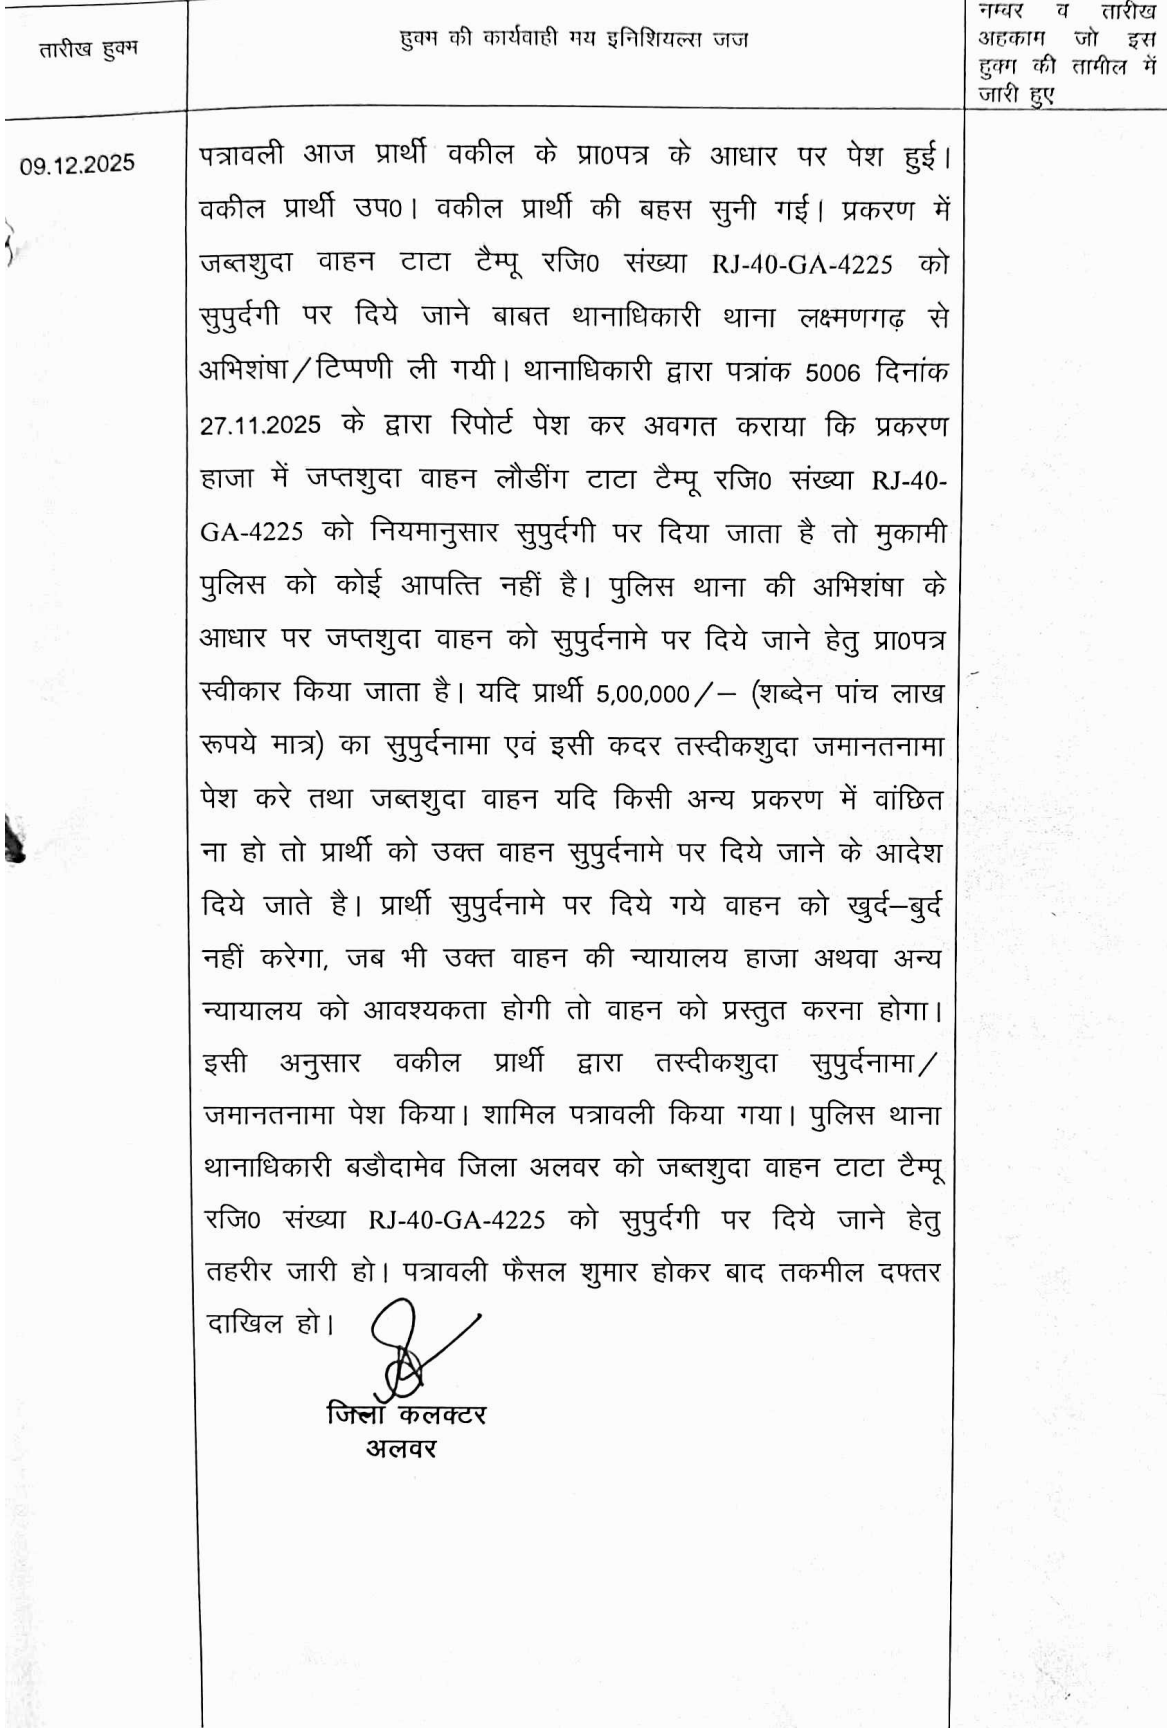 तारीख हुक्म
हुक्म की कार्यवाही मय इनिशियल्स जज
नम्वर व तारीख
अहकाम जो इस
हुक्म की तामील में
जारी हुए
09.12.2025
पत्रावली आज प्रार्थी वकील के प्रा0पत्र के आधार पर पेश हुई।
वकील प्रार्थी उप0। वकील प्रार्थी की बहस सुनी गई। प्रकरण में
जब्तशुदा वाहन टाटा टैम्पू रजि0 संख्या RJ-40-GA-4225 को
सुपुर्दगी पर दिये जाने बाबत थानाधिकारी थाना लक्ष्मणगढ़ से
अभिशंषा/टिप्पणी ली गयी। थानाधिकारी द्वारा पत्रांक 5006 दिनांक
27.11.2025 के द्वारा रिपोर्ट पेश कर अवगत कराया कि प्रकरण
हाजा में जप्तशुदा वाहन लौडींग टाटा टैम्पू रजि0 संख्या RJ-40-
GA-4225 को नियमानुसार सुपुर्दगी पर दिया जाता है तो मुकामी
पुलिस को कोई आपत्ति नहीं है। पुलिस थाना की अभिशंषा के
आधार पर जप्तशुदा वाहन को सुपुर्दनामे पर दिये जाने हेतु प्रा0पत्र
स्वीकार किया जाता है। यदि प्रार्थी 5,00,000/– (शब्देन पांच लाख
रूपये मात्र) का सुपुर्दनामा एवं इसी कदर तस्दीकशुदा जमानतनामा
पेश करे तथा जब्तशुदा वाहन यदि किसी अन्य प्रकरण में वांछित
ना हो तो प्रार्थी को उक्त वाहन सुपुर्दनामे पर दिये जाने के आदेश
दिये जाते है। प्रार्थी सुपुर्दनामे पर दिये गये वाहन को खुर्द–बुर्द
नहीं करेगा, जब भी उक्त वाहन की न्यायालय हाजा अथवा अन्य
न्यायालय को आवश्यकता होगी तो वाहन को प्रस्तुत करना होगा।
इसी अनुसार वकील प्रार्थी द्वारा तस्दीकशुदा सुपुर्दनामा/
जमानतनामा पेश किया। शामिल पत्रावली किया गया। पुलिस थाना
थानाधिकारी बडौदामेव जिला अलवर को जब्तशुदा वाहन टाटा टैम्पू
रजि0 संख्या RJ-40-GA-4225 को सुपुर्दगी पर दिये जाने हेतु
तहरीर जारी हो। पत्रावली फैसल शुमार होकर बाद तकमील दफ्तर
दाखिल हो।
जिला कलक्टर
अलवर